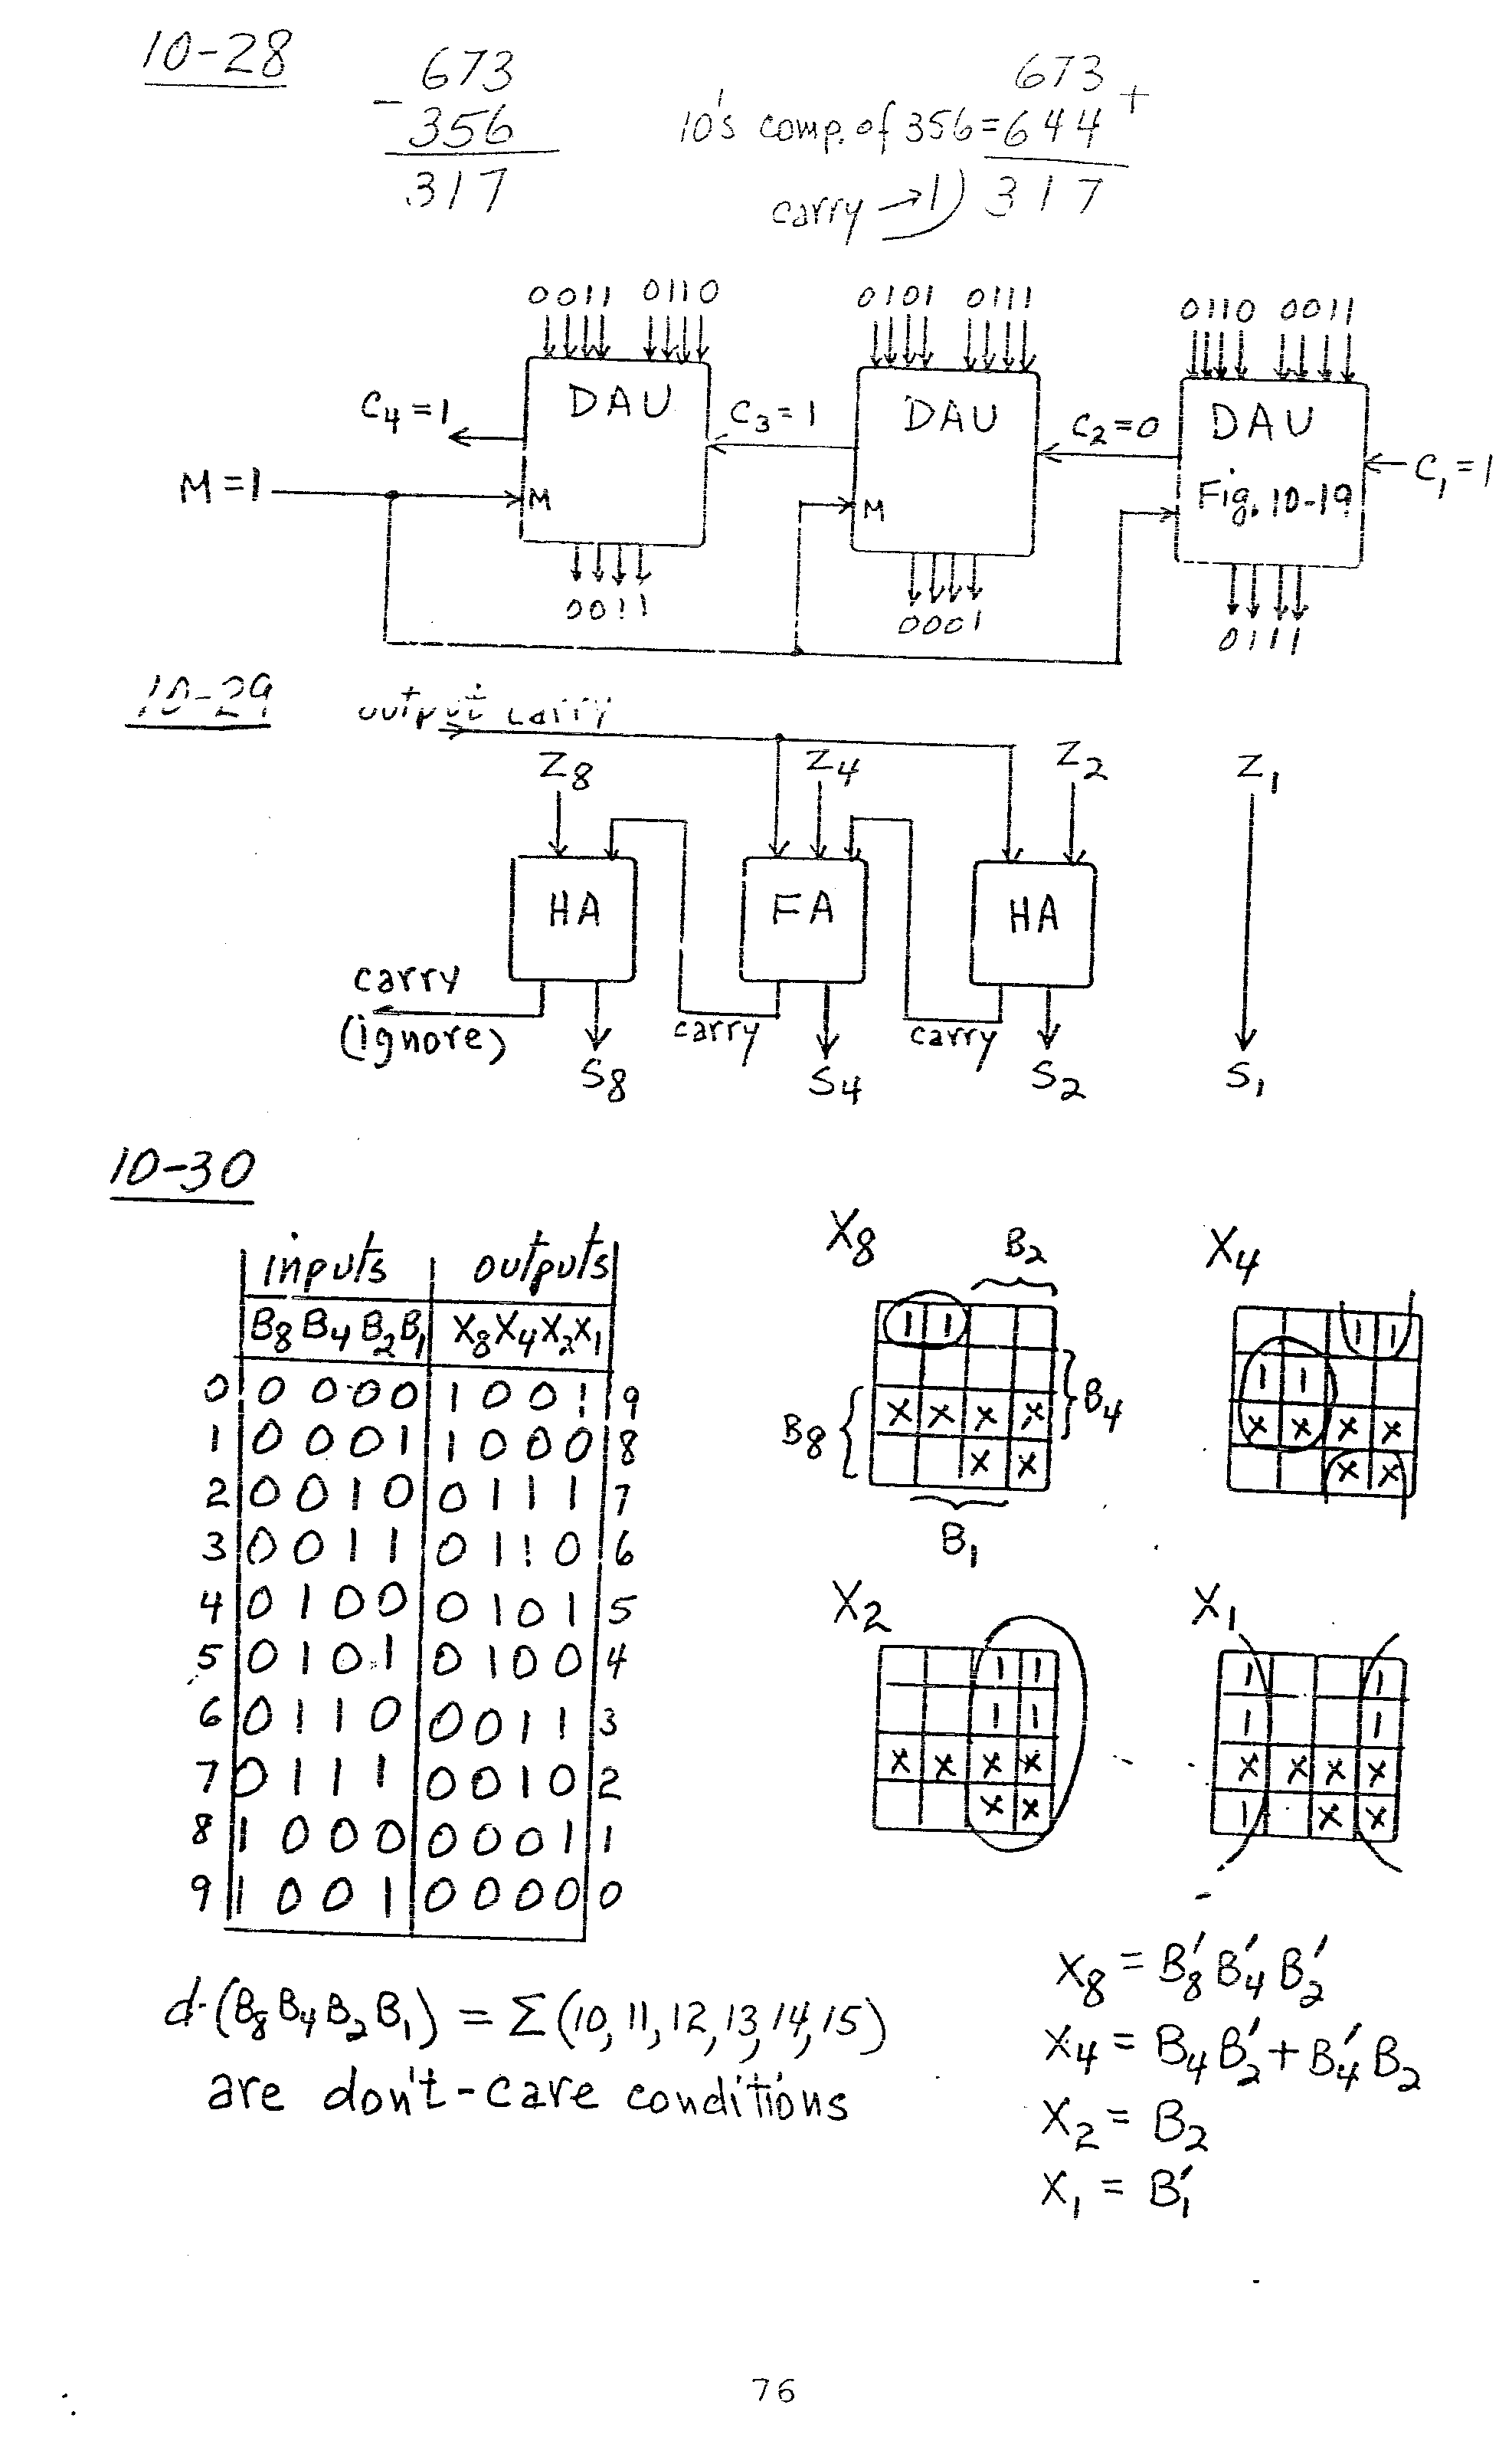 10-28
673
- 356
317
673 +
10's comp. of 356 = 644
carry → 1) 3 1 7
0011 0110 0101 0111 0110 0011
DAU DAU DAU
C4 = 1 C3 = 1 C2 = 0 C1 = 1
M = 1 M M Fig. 10-19
0011 0001 0111
10-29 output carry
Z8 Z4 Z2 Z1
HA FA HA
carry
(ignore) carry carry
S8 S4 S2 S1
10-30
inputs outputs
B8 B4 B2 B1 X8 X4 X2 X1
0 0 0 0 0 1 0 0 1 9
1 0 0 0 1 1 0 0 0 8
2 0 0 1 0 0 1 1 1 7
3 0 0 1 1 0 1 1 0 6
4 0 1 0 0 0 1 0 1 5
5 0 1 0 1 0 1 0 0 4
6 0 1 1 0 0 0 1 1 3
7 0 1 1 1 0 0 1 0 2
8 1 0 0 0 0 0 0 1 1
9 1 0 0 1 0 0 0 0 0
d(B8 B4 B2 B1) = Σ(10, 11, 12, 13, 14, 15)
are don't-care conditions
X8 B2
1 1
B4
B8 X X X X
X X
B1
X4
1 1
1 1
X X X X
X X
X2
1 1
1 1
X X X X
X X
X1
1 1
1 1
X X X X
1 X X
X8 = B8' B4' B2'
X4 = B4 B2' + B4' B2
X2 = B2
X1 = B1'
76